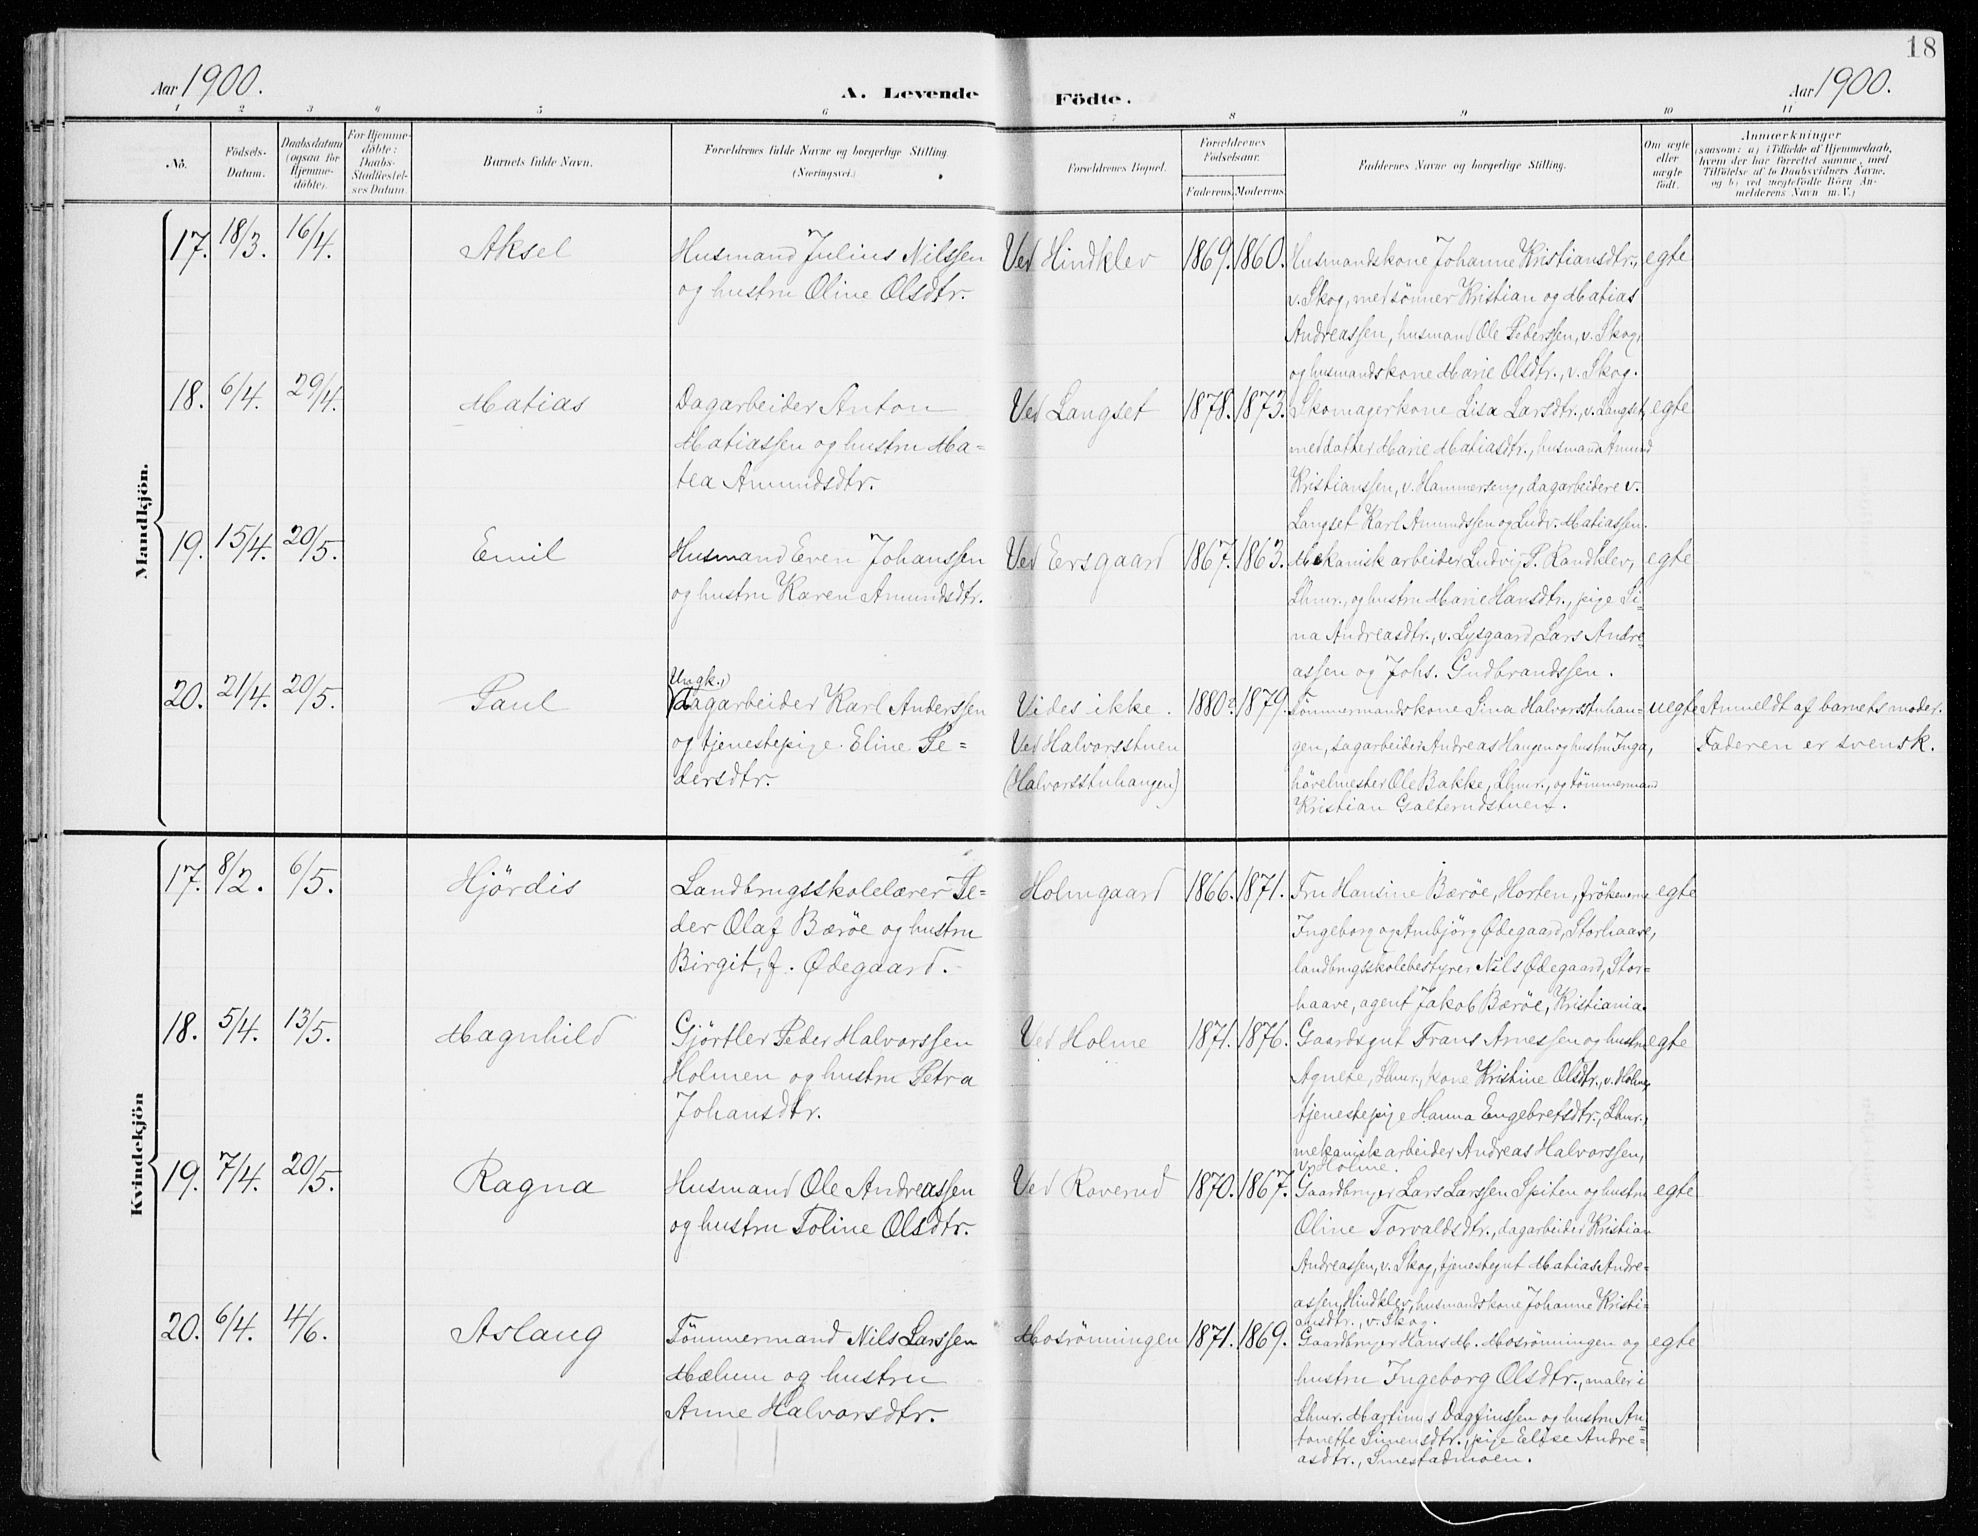 18
Aar 1900.
A. Levende Födte.
Aar 1900.
1 2 3 4 5 6 7 8 9 10 11
Nö.
Födsels-Datum.
Daabsdatum (ogsaa for Hjemmedöbte).
For Hjemmedöbte: Daabs-Stadfæstelses Datum
Barnets fulde Navn.
Forældrenes fulde Navne og borgerlige Stilling. (Næringsvei.)
Forældrenes Bopæl.
Forældrenes Födselsaar.
Faderens. Moderens.
Faddernes Navne og borgerlige Stilling.
Om ægte eller uægte födt.
Anmærkninger
(saasom: a) i Tilfælde af Hjemmedaab, hvem der har forrettet samme, med Tilföielse af to Daabsvidners Navne. og b) ved uægtefödte Börn Anmelderens Navn m.V.)
Mandkjön.
17. 18/3. 16/4. Aksel
Husmand Julius Nilssen
og hustru Oline Olsdtr.
Ved Hindklev 1869. 1860.
Husmandskone Johanne Kristiansdtr.,
v. Skog, med sønner Kristian og Matias
Andreassen, husmand Ole Pederssen, v. Skog,
og husmandskone Marie Olsdtr., v. Skog.
egte
18. 6/4. 29/4. Matias
Dagarbeider Anton
Matiassen og hustru Ma=
tea Amundsdtr.
Ved Langset 1878. 1873.
Skomagerkone Lisa Larsdtr., v. Langset,
med datter Marie Matiasdtr., husmand Amund
Kristianssen, v. Hammerseng, dagarbeidere v.
Langset Karl Amundssen og Ludv. Matiassen.
egte
19. 15/4. 20/5. Emil
Husmand Even Johanssen
og hustru Karen Amundsdtr.
Ved Ersgaard 1867. 1863.
Mekanisk arbeider Ludvig P. Randklev,
Lhmr., og hustru Marie Hansdtr., pige Si=
na Andreasdtr., v. Lysgaard, Lars Andre=
assen og Johs. Gudbrandssen.
egte
20. 21/4. 20/5. Paul
Ungk.,
dagarbeider Karl Anderssen
og tjenestepige Eline Pe=
dersdtr.
Vides ikke.
Ved Halvorsstuen
(Halvorsstuhaugen)
1880? 1879.
Tömmermandskone Sina Halvorsstuhau-
gen, dagarbeider Andreas Haugen og hustru Inga,
hövelmester Ole Bakke, Lhmr., og tömmermand
Kristian Galterudstuen.
uegte
Anmeldt af barnets moder.
Faderen er svensk.
Kvindekjön
17. 8/2. 6/5. Hjördis
Landbrugsskolelærer Pe=
der Olaf Bærøe og hustru
Birgit, f. Ødegaard.
Holmgaard 1866. 1871.
Fru Hansine Bærøe, Horten, frökenerne
Ingeborg og Ambjörg Ødegaard, Storhaave,
landbrugsskolebestyrer Nils Ødegaard, Stor-
haave, agent Jakob Bærøe, Kristiania.
egte
18. 5/4. 13/5. Magnhild
Gjörtler Peder Halvorssen
Holmen og hustru Petra
Johansdtr.
Ved Holme 1871. 1876.
Gaardsgut Frans Arnessen og hustru
Agnete, Lhmr., kone Kristine Olsdtr., v. Holme,
tjenestepige Hanna Engebretsdtr., Lhmr.,
mekanisk arbeider Andreas Halvorssen,
v. Holme.
egte
19. 7/4. 20/5. Ragna
Husmand Ole Andreassen
og hustru Toline Olsdtr.
Ved Roverud 1870. 1867.
Gaardbruger Lars Larssen Spiten og hustru
Oline Torvaldsdtr., dagarbeider Kristian
Andreassen, v. Skog, tjenestegut Matias Andre=
assen, Hindklev, husmandskone Johanne Kristi=
ansdtr., v. Skog.
egte
20. 6/4. 4/6. Aslaug
Tömmermand Nils Larssen
Mælum og hustru
Anne Halvorsdtr.
Mosrönningen 1871. 1869.
Gaardbruger Hans M. Mosrönningen og
hustru Ingeborg Olsdtr., maler i
Lhmr. Martinus Dagfinssen og hustru An=
tonette Simensdtr., pige Elise Andre=
asdtr., Smestadmoen.
egte